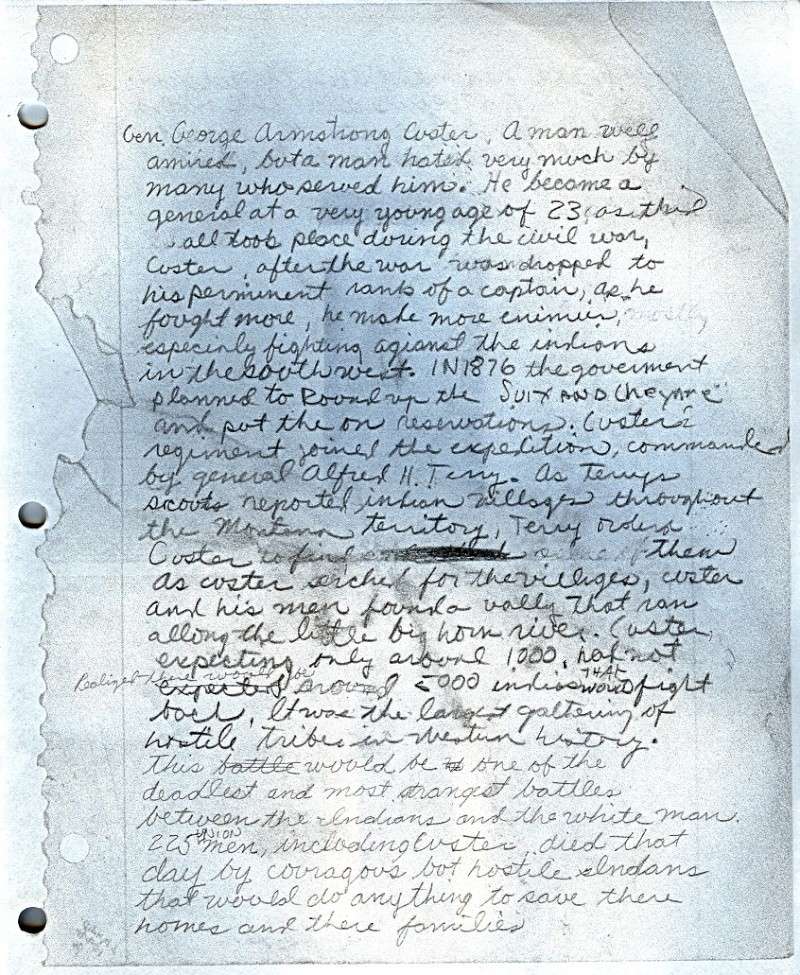 Gen. George Armstrong Custer, A man well
amired, but a man hated very much by
many who served him. He became a
general at a very young age of 23, as this
all took place during the civil war,
Custer, after the war was dropped to
his perminent rank of a captain, as he
fought more, he make more enimies, mostly
especialy fighting agianst the indians
in the south west. IN 1876 the goverment
planned to Round up the SuiX AND Cheynne
and put the on reservations. Custers
regiment joined the expedition, commanded
by general Alfred H. Terry. As Terrys
scouts reported indian villages throughout
the Montana territory, Terry ordered
Custer to find them
As custer serched for the villiges, custer
and his men found a vally that ran
allong the little big horn river. Custer,
expecting only around 1,000, had not
Realized there would be
expected around 5000 indians THAT would fight
back, It was the largest gathering of
hostile tribes in western history.
this battle would be is one of the
deadlest and most strangest battles
between the Indians and the white man.
225 UNION men, including Custer, died that
day by couragous but hostile Indans
that would do anything to save there
homes and there families